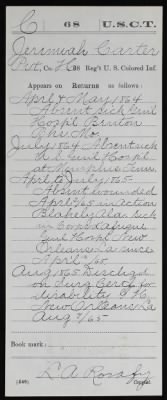 C 68 U.S.C.T.
Jeremiah Carter
Pvt, Co. H, 68 Reg't U. S. Colored Inf.
Appears on Returns as follows:
April & May 1864
Absent sick Genl
Hospl Benton
Bks Mo.
July 1864 Absent sick
U.S. Genl Hospl
at Memphis Tenn.
April to July 1865
Absent wounded
April 9/65 in action
Blakely Ala Sick
in Corps d'Afrique
Genl Hospl New
Orleans La since
April /65
Aug 1865 Dischgd
on Surg Certf for
disability G.H.
New Orleans La
Aug 7/65
Book mark:
(546)
Copyist.